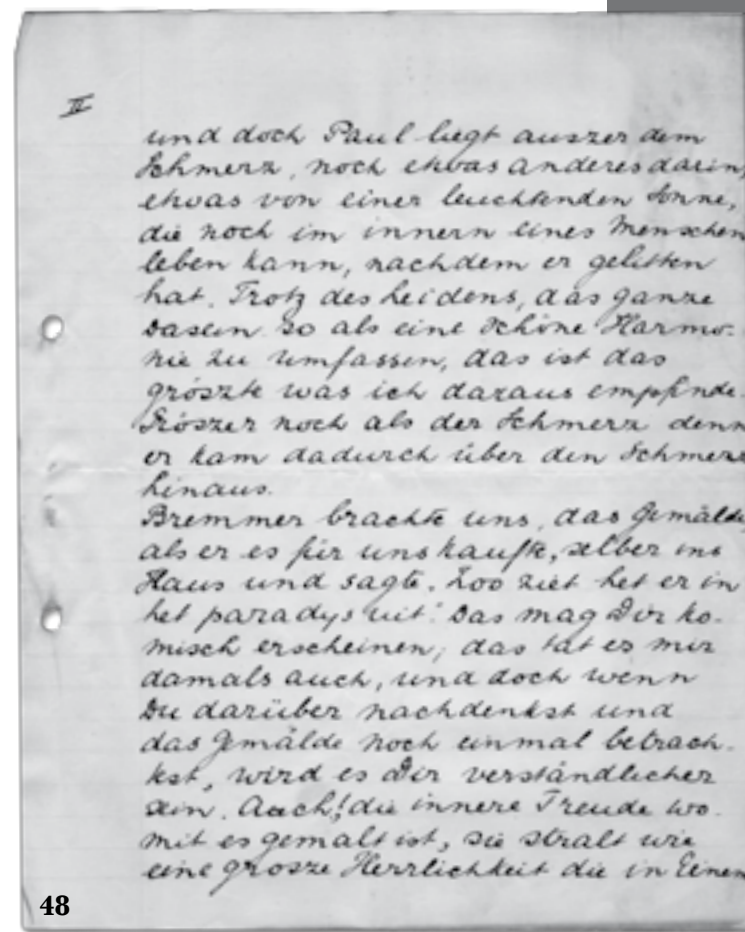 II
und doch Paul liegt auszer dem
Schmerz, noch etwas anderes darin,
etwas von einer leuchtenden Sonne,
die noch im innern eines Menschen
leben kann, nachdem er gelitten
hat. Trotz des Leidens, das ganze
Dasein so als eine schöne Harmo-
nie zu umfassen, das ist das
gröszte was ich daraus empfinde.
Gröszer noch als der Schmerz denn
er kam dadurch über den Schmerz
hinaus.
Bremmer brachte uns, das Gemälde,
als er es für uns kaufte, selber ins
Haus und sagte. Zoo ziet het er in
het paradys uit! Das mag Dir ko-
misch erscheinen, das tat es mir
damals auch, und doch wenn
Du darüber nachdenkst und
das Gemälde noch einmal betrach-
test, wird es Dir verständlicher
sein. Auch! die innere Freude wo-
mit es gemalt ist, sie stralt wie
eine grosze Herrlichkeit die in Einem
48